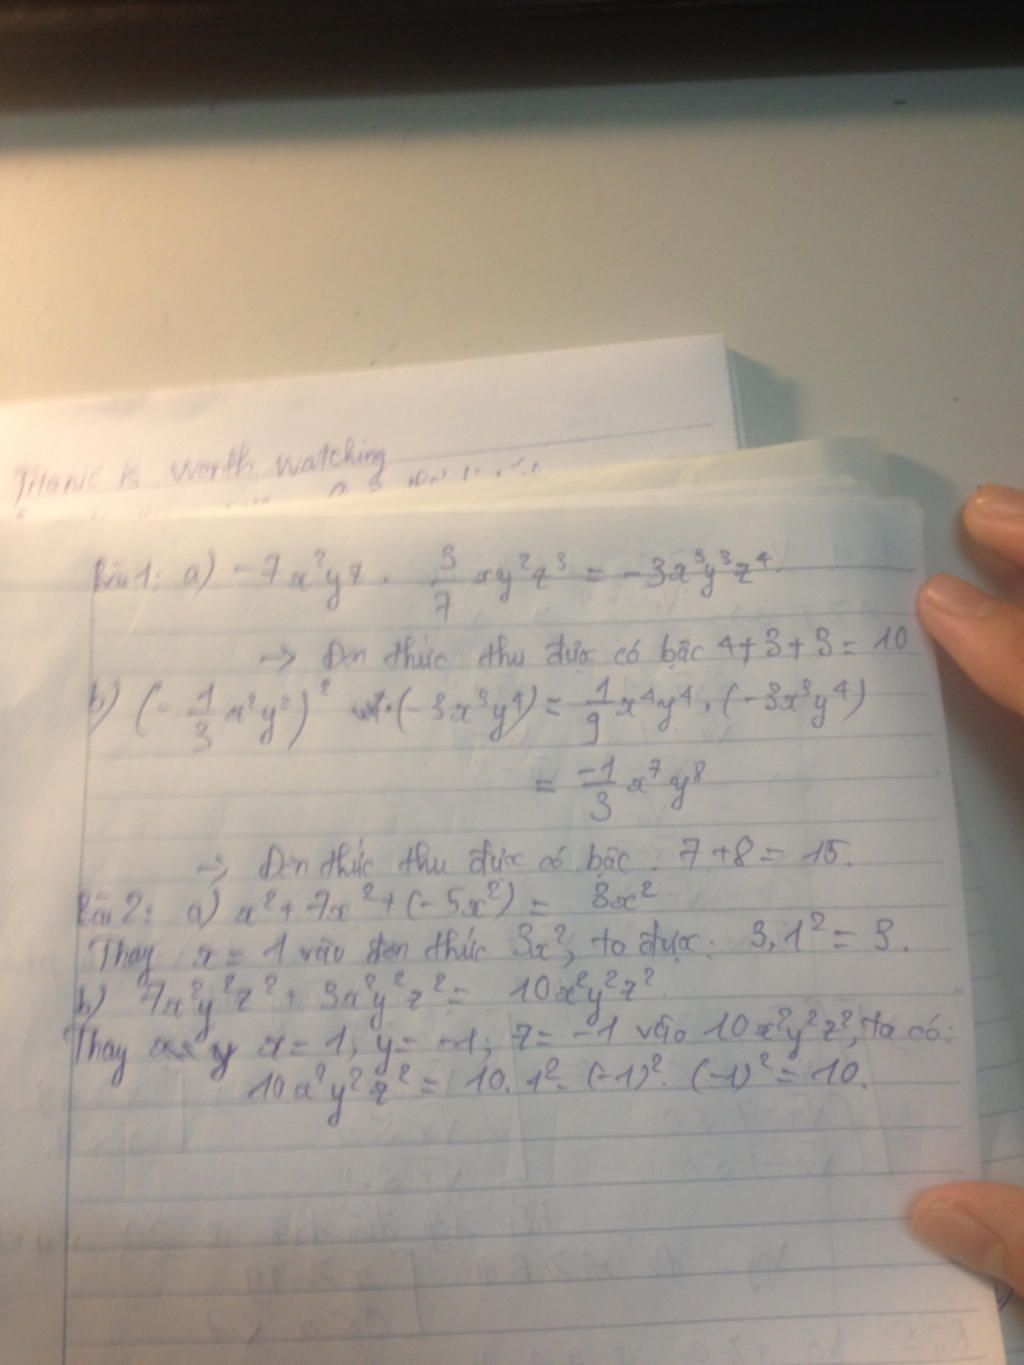 Titanic is worth watching
Câu 1: a) -7x²yz . 3/7 xy²z³ = -3x³y³z⁴.
→ Đơn thức thu được có bậc 4+3+3 = 10
b) (-1/3 x²y²)² .(-3x³y⁴) = 1/9 x⁴y⁴ . (-3x³y⁴)
= -1/3 x⁷y⁸
→ Đơn thức thu được có bậc : 7+8 = 15.
Câu 2: a) x² + 7x² + (-5x²) = 3x²
Thay x = 1 vào đơn thức 3x², ta được: 3.1² = 3.
b) 7x²y²z² + 3x²y²z² = 10x²y²z².
Thay x = 1; y = -1; z = -1 vào 10x²y²z², ta có:
10x²y²z² = 10. 1². (-1)². (-1)² = 10.